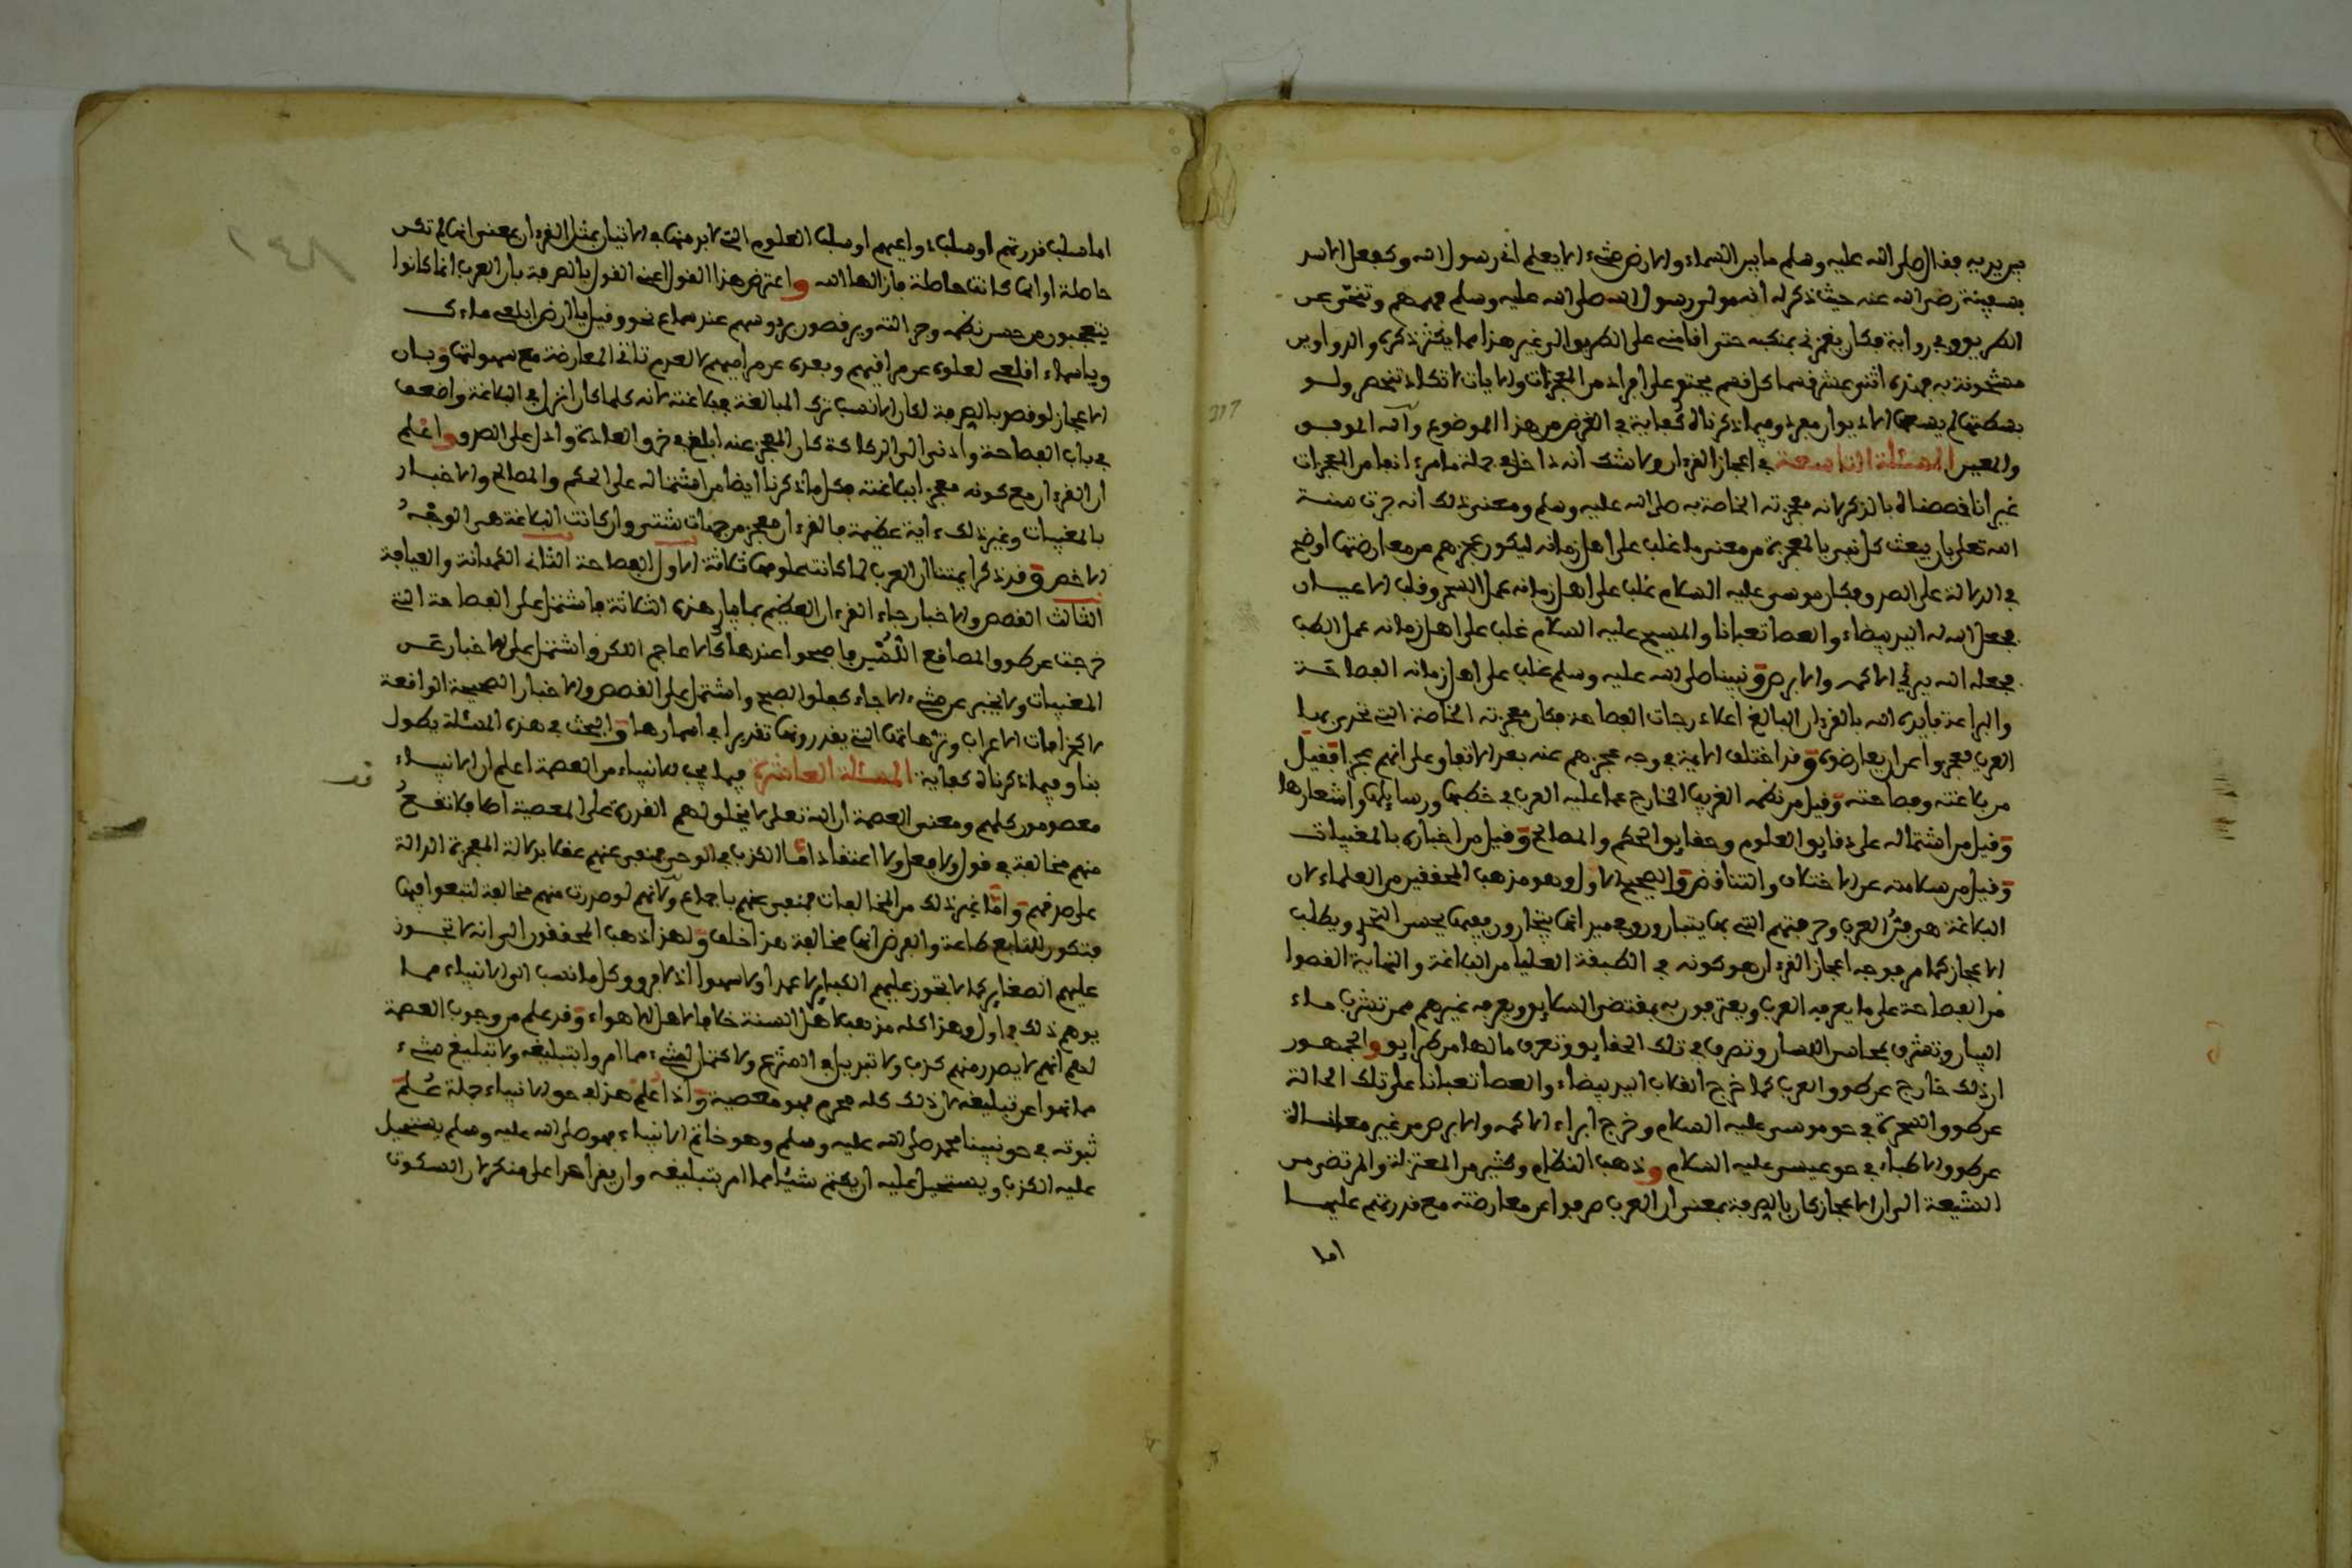 يديه فقال صلى الله عليه وسلم ما بين السماء والارض شيء الا يعلم اني رسول الله وكفعل الاسد
بسفينة رضي الله عنه حيث ذكر له انه مولى رسول الله صلى الله عليه وسلم فهمهم وتنحى عن
الطريق وفي رواية فكان يغمزني بمنكبه حتى اقامني على الطريق الى غير هذا مما يكثر ذكره والدواوين
مشحونة به فهذه اثني عشر قسما كل قسم يحتوي على افراد من المعجزات والايات لا تكاد تنحصر ولو
بسطتها لم يسعها الا ديوان مفرد وفيما ذكرناه كفاية في الغرض من هذا الموضوع والله الموفق
والمعين المسئلة التاسعة في اعجاز القرءان ولا شك انه داخل في جملة ما مر ءانفا من المعجزات
غير انا خصصناه بالذكر لانه معجزته الخاصة به صلى الله عليه وسلم ومعنى ذلك انه جرت سنة
الله تعلى بان يبعث كل نبي بالمعجزة من معنى ما غلب على اهل زمانه ليكون عجزهم عن معارضتها اوضح
في الدلالة على الصدق فكان موسى عليه السلام غلب على اهل زمانه عمل السحر وقلب الاعيان
فجعل الله له اليد بيضاء والعصا ثعبانا والمسيح عليه السلام غلب على اهل زمانه عمل الطب
فجعله الله يبرئ الاكمه والابرص ونبينا صلى الله عليه وسلم غلب على اهل زمانه الفصاحة
والبراعة فايده الله بالقرءان البالغ اعلا درجات الفصاحة فكان معجزته الخاصة التي تحدى بها
العرب فعجزوا عن ان يعارضوه وقد اختلف الايمة في وجه عجزهم عنه بعد الاتفاق على انهم عجزوا فقيل
من بلاغته وفصاحته وقيل من نظمه الغريب الخارج عما عليه العرب في خطبها ورسايلها واشعارها
وقيل من اشتماله على دقايق العلوم وحقايق الحكم والمصالح وقيل من اخباره بالمغيبات
وقيل من سلامته عن الاختلاف والتناقض والصحيح الاول وهو مذهب المحققين من العلماء لان
البلاغة هي فن العرب وحرفتهم التي بها يتبارون وفي ميدانها يتجارون وفيها يحسن التحدي ويطلب
الاعجاز كما مر فوجه اعجاز القرءان هو كونه في الطبقة العليا من البلاغة والنهاية القصوا
من الفصاحة على ما يعرفه العرب ويعترفون به بمقتضى السلايق ويعرفه غيرهم ممن تشرب ماء
البيان وتعثرى بمحاسن اللسان وتصرف في تلك الحقايق وتعرف ما لها من طرايق والجمهور
ان ذلك خارج عن طوق العرب كما خرج انقلاب اليد بيضاء والعصا ثعبانا على تلك الحالة
عن طوق السحرة في حق موسى عليه السلام وخرج ابراء الاكمه والابرص من غير معاناة
عن طوق الاطباء في حق عيسى عليه السلام وذهب النظام وكثير من المعتزلة والمرتضى من
الشيعة الى ان الاعجاز كان بالصرفة بمعنى ان العرب صرفوا عن معارضته مع قدرتهم عليها
اما
اما بسلب قدرتهم او بسلب دواعيهم او بسلب العلوم التي لابد منها في الاتيان بمثل القرءان بمعنى انها لم تكن
حاصلة او انها كانت حاصلة فازالها الله واعترض هذا القول اعني القول بالصرفة بان العرب انما كانوا
يتعجبون من حسن نظمه وجزالته ويرقصون رءوسهم عند سماع نحو وقيل يا ارض ابلعي ماءك
ويا سماء اقلعي لعلوه عن مراقيهم وبعده عن مراميهم لا لعدم تاتي المعارضة مع سهولتها وبان
الاعجاز لو قصد بالصرفة لكان الانسب ترك المبالغة في بلاغته لانه كلما كان انزل في البلاغة واضعف
في باب الفصاحة وادنى الى الركاكة كان العجز عنه ابلغ في خرق العادة وادل على الصدق واعلم
ان القرءان مع كونه معجزا ببلاغته فكل ما ذكرنا ايضا من اشتماله على الحكم والمصالح والاخبار
بالمغيبات وغير ذلك ءاية عظيمة فالقرءان معجز من جهات شتى وان كانت البلاغة هي الوجه
الاخص وقد ذكر ايمتنا ان العرب لما كانت علومها ثلاثة الاول الفصاحة الثاني الكهانة والعيافة
الثالث القصص والاخبار جاء القرءان العظيم بما يباين هذه الثلاثة فاشتمل على الفصاحة التي
خرجت عن طوق المصاقع اللسن فاصبحوا عندها كالاعاجم اللكن واشتمل على الاخبار عن
المغيبات ولا يخبر عن شيء الا جاء كفلق الصبح واشتمل على القصص والاخبار الصحيحة الواقعة
لا كخرافات الاعراب وترهاتها التي يقدرونها تقديرا في اسمارها والبحث في هذه المسئلة يطول
بنا وفيما ذكرناه كفاية المسئلة العاشرة فيما يجب للانبياء من العصمة اعلم ان الانبياء
معصومون كلهم ومعنى العصمة ان الله تعلى لا يخلق لهم القدرة على المعصية اصلا فلا تقع
منهم مخالفة في قول ولا فعل ولا اعتقاد اما الكذب في الوحي فمنفي عنهم عقلا بدلالة المعجزة الدالة
على صدقهم واما غير ذلك من المخالفات فمنفي عنهم باجماع ولانهم لو صدرت منهم مخالفة لتبعوا فيها
فتكون للتابع طاعة والفرض انها مخالفة هذا خلف ولهذا ذهب المحققون الى انه لا تجوز
عليهم الصغاير كما لا تجوز عليهم الكباير لا عمدا ولا سهوا اذ لا فرق وكل ما نسب الى الانبياء مما
يوهم ذلك فماول وهذا كله مذهب اهل السنة خلافا لاهل الاهواء وقد علم من وجوب العصمة
لهم انهم لا يصدر منهم كذب ولا تبديل في الشرع ولا كتمان لشيء مما امروا بتبليغه ولا تبليغ شيء
مما نهوا عن تبليغه لان ذلك كله محرم فهو معصية واذا علم هذا في حق الانبياء جملة علم
ثبوته في حق نبينا محمد صلى الله عليه وسلم وهو خاتم الانبياء فهو صلى الله عليه وسلم يستحيل
عليه الكذب ويستحيل عليه ان يكتم شيئا مما امر بتبليغه وان يقر احدا على منكر لان السكوت